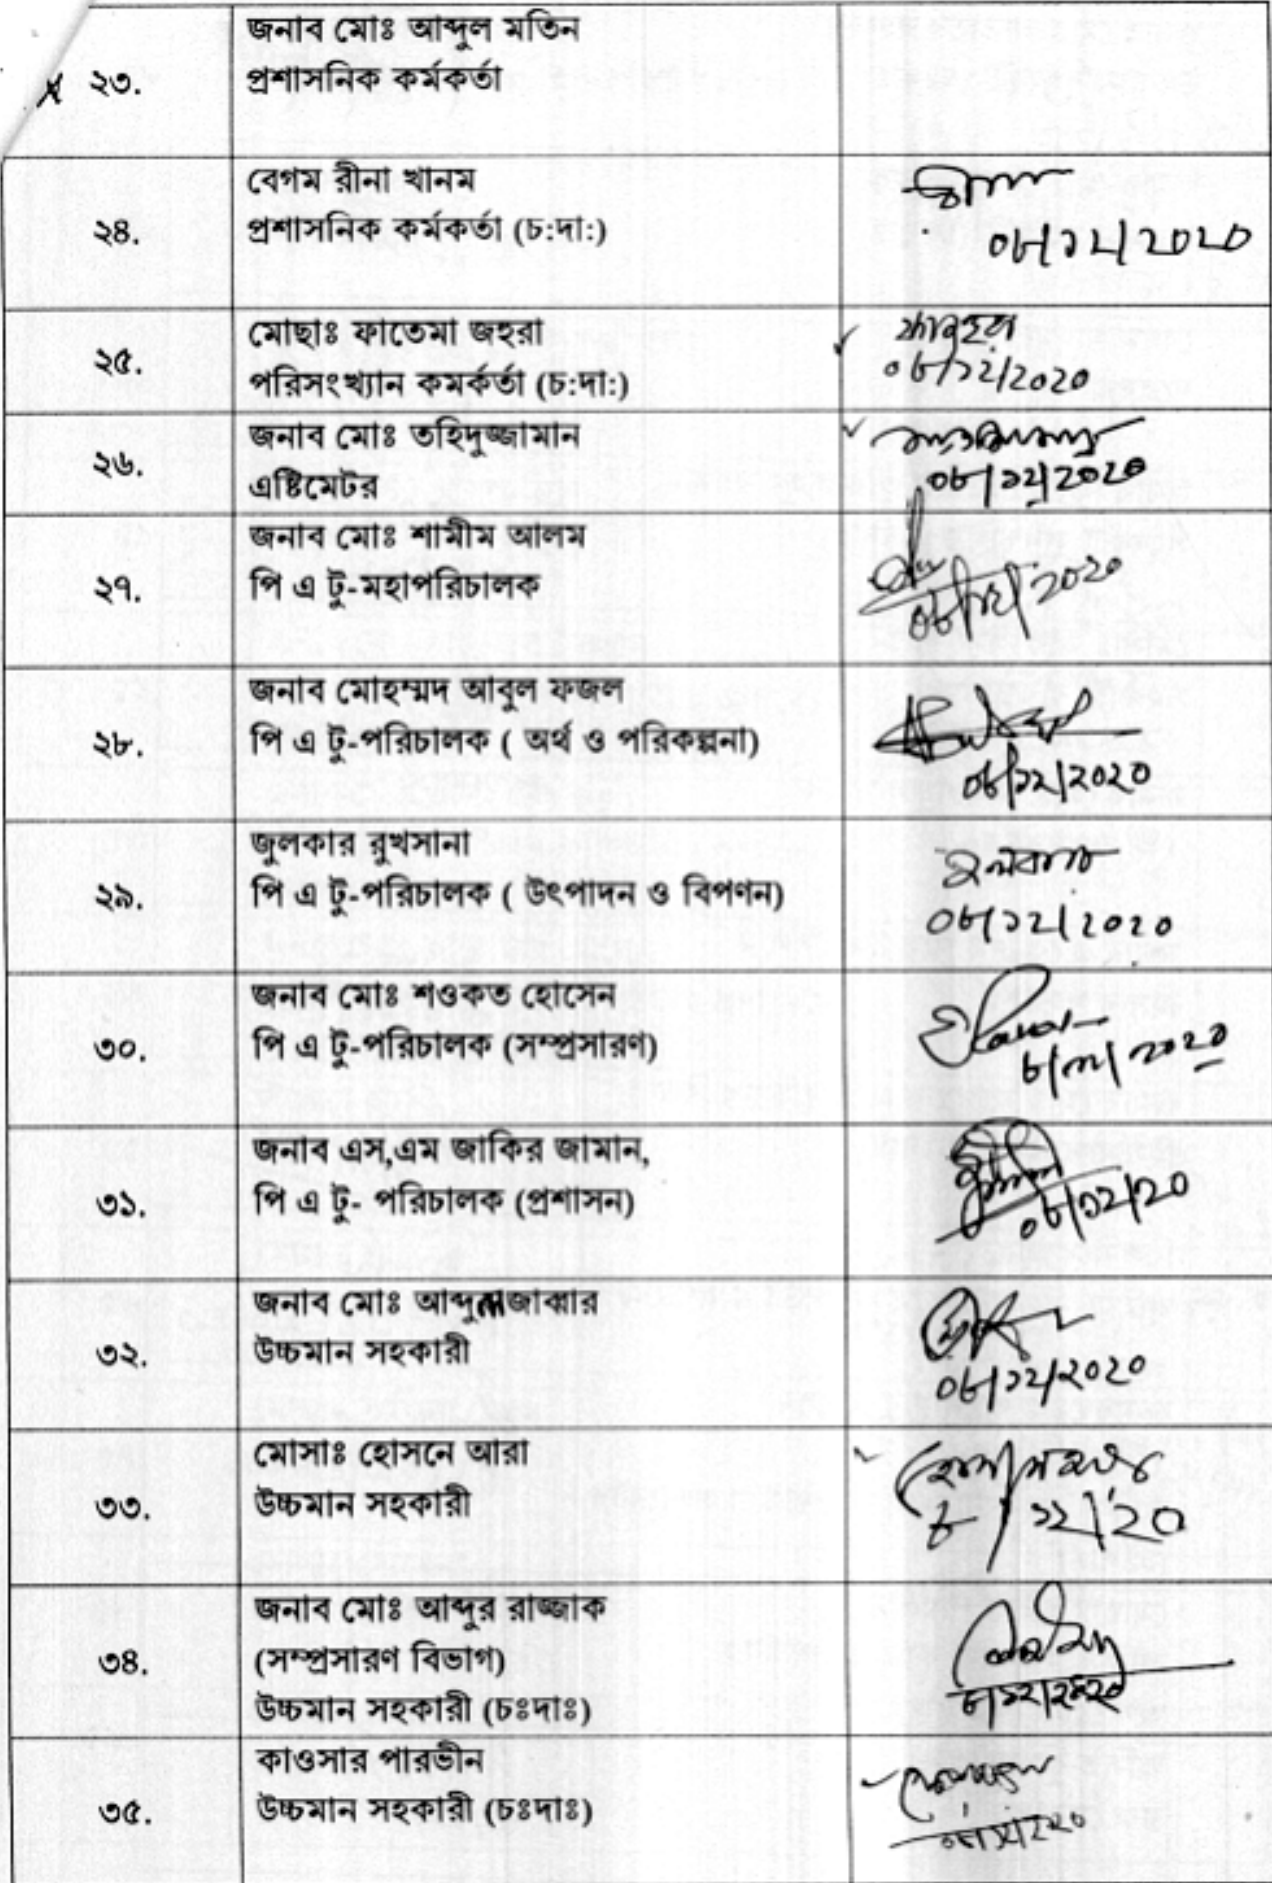 জনাব মোঃ আব্দুল মতিন
২৩. প্রশাসনিক কর্মকর্তা
বেগম রীনা খানম
২৪. প্রশাসনিক কর্মকর্তা (চ:দা:)
০৮/১২/২০২০
মোছাঃ ফাতেমা জহরা
২৫. পরিসংখ্যান কমর্কর্তা (চ:দা:)
০৮/১২/২০২০
জনাব মোঃ তহিদুজ্জামান
২৬. এষ্টিমেটর
০৮/১২/২০২০
জনাব মোঃ শামীম আলম
২৭. পি এ টু-মহাপরিচালক
০৮/১২/২০২০
জনাব মোহম্মদ আবুল ফজল
২৮. পি এ টু-পরিচালক ( অর্থ ও পরিকল্পনা)
০৮/১২/২০২০
জুলকার রুখসানা
২৯. পি এ টু-পরিচালক ( উৎপাদন ও বিপণন)
০৮/১২/২০২০
জনাব মোঃ শওকত হোসেন
৩০. পি এ টু-পরিচালক (সম্প্রসারণ)
৮/১২/২০২০
জনাব এস,এম জাকির জামান,
৩১. পি এ টু- পরিচালক (প্রশাসন)
০৮/১২/২০
জনাব মোঃ আব্দুল জাব্বার
৩২. উচ্চমান সহকারী
০৮/১২/২০২০
মোসাঃ হোসনে আরা
৩৩. উচ্চমান সহকারী
৮/১২/২০
জনাব মোঃ আব্দুর রাজ্জাক
৩৪. (সম্প্রসারণ বিভাগ)
উচ্চমান সহকারী (চঃদাঃ)
৮/১২/২০২০
কাওসার পারভীন
৩৫. উচ্চমান সহকারী (চঃদাঃ)
০৮/১২/২০২০